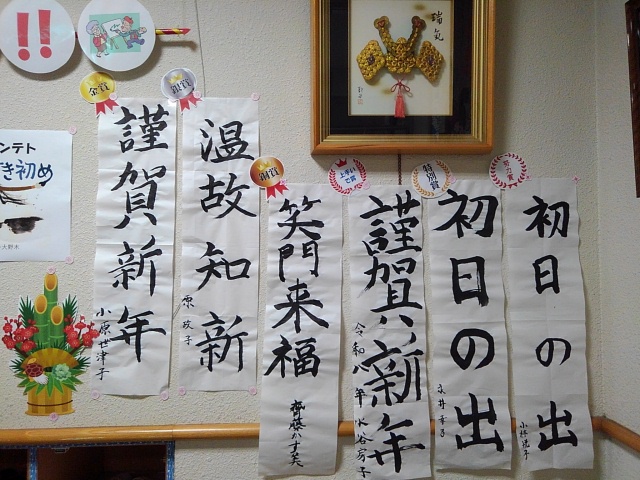 !!
瑞気
ンテト
き初め
金賞
謹賀新年
小原世津子
銀賞
温故知新
銅賞
笑門来福
齋藤かず美
上手いで賞
謹賀新年
令和八年 水谷房子
特別賞
初日の出
永井幸子
努力賞
初日の出